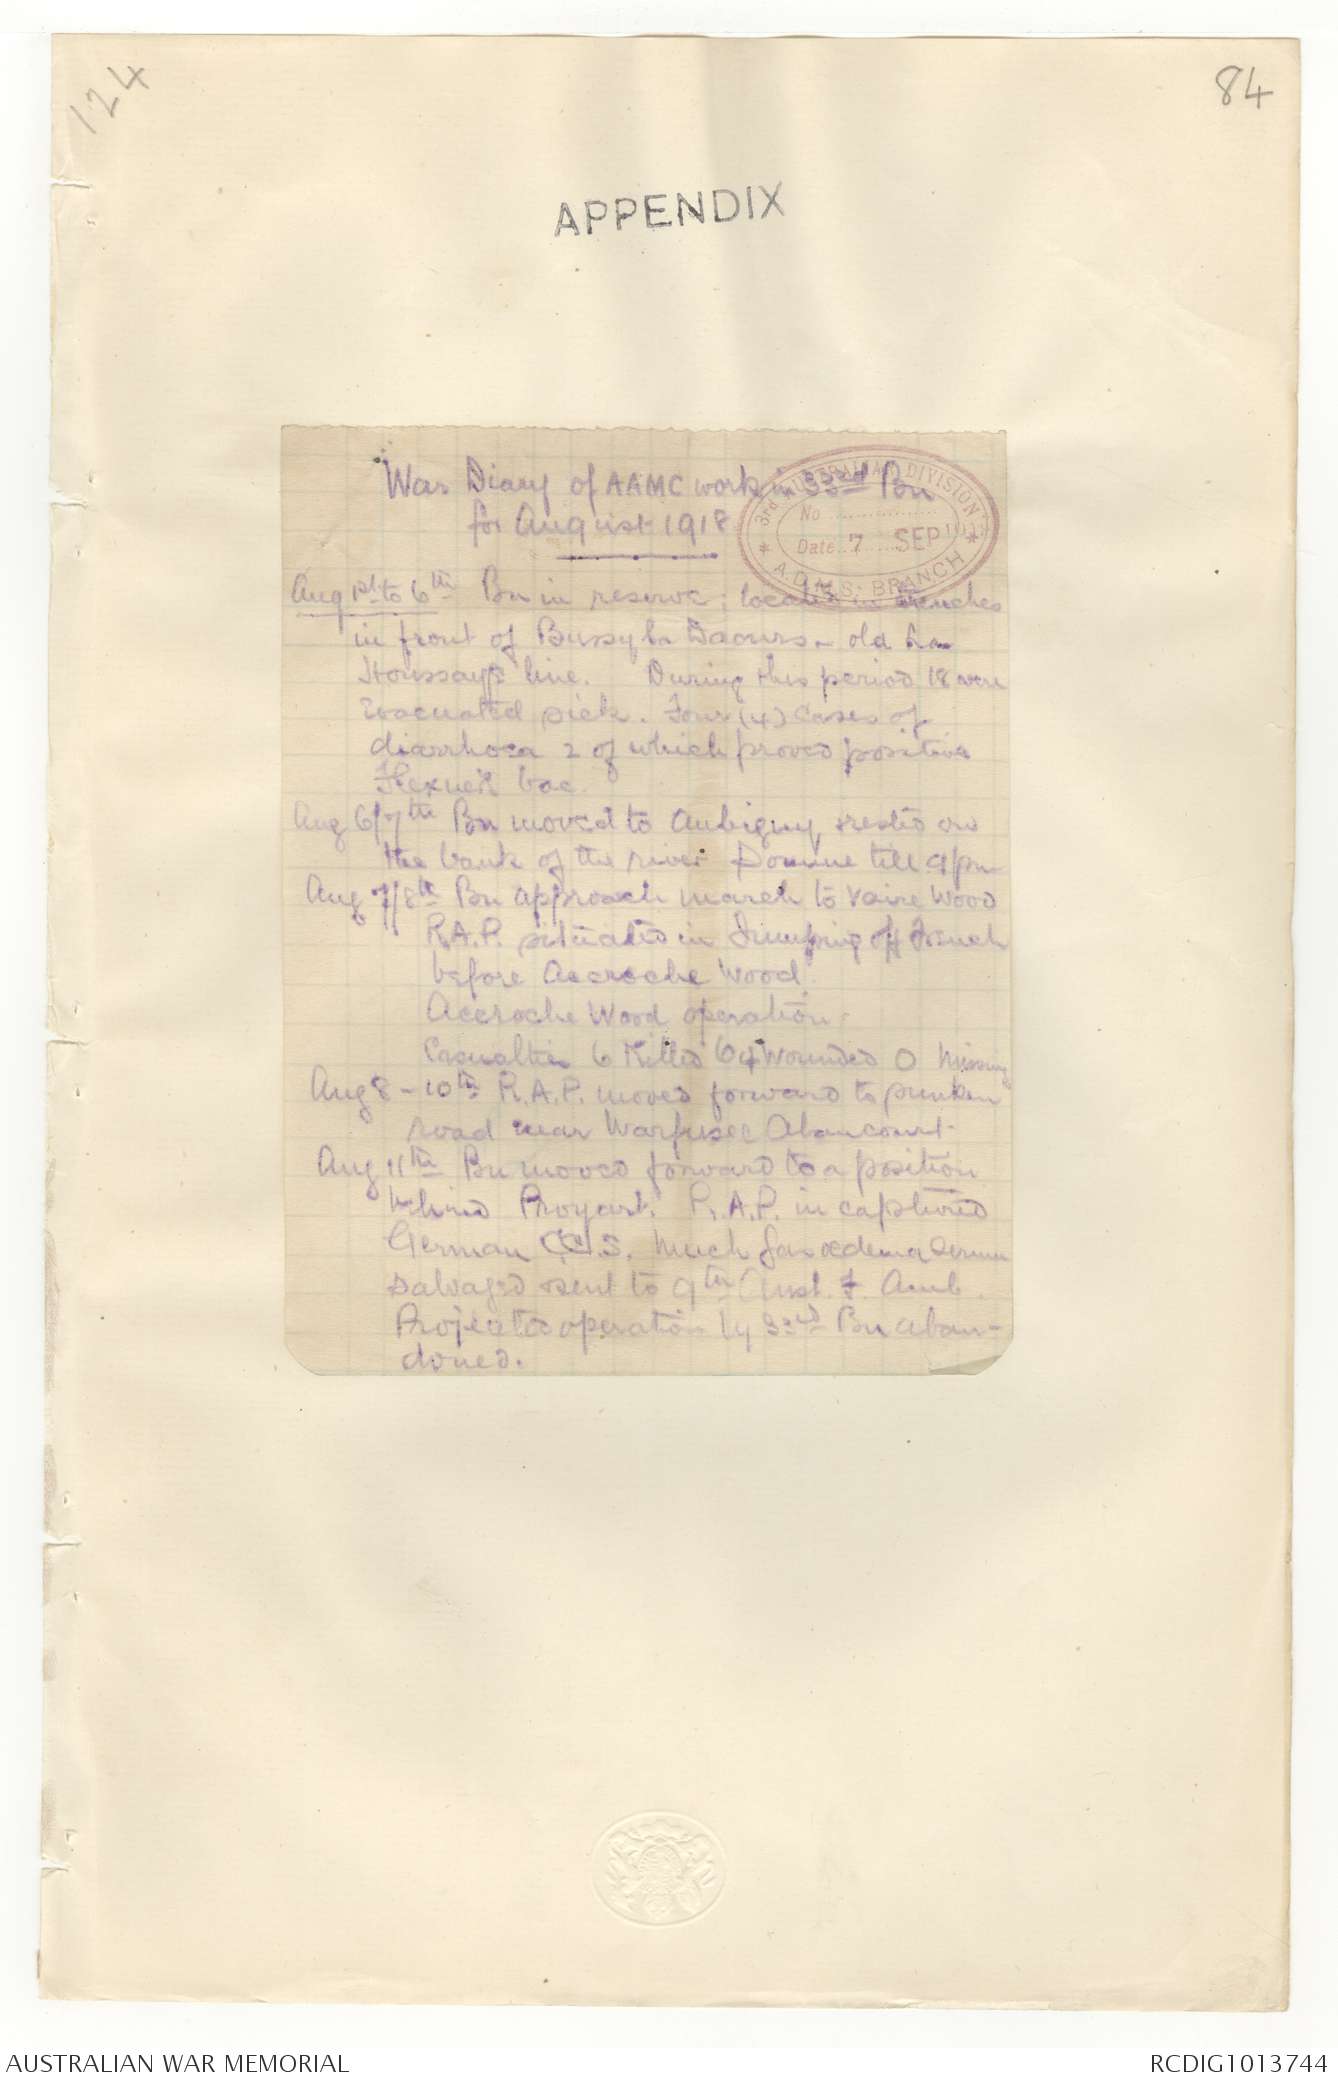 124
84
APPENDIX
War Diary of AAMC work in 33rd Bn
for August 1918
3rd AUSTRALIAN DIVISION
No
Date 7 SEP
A.D.M.S. BRANCH
Aug 1st to 6th Bn in reserve: located in trenches
in front of Bussy la Daours - old La
Houssaye line. During this period 18 were
evacuated sick. Four (4) cases of
diarrhoea 2 of which proved positive
Flexner bac.
Aug 6/7th Bn moved to Aubigny, rested on
the bank of the river Somme till 9 pm
Aug 7/8th Bn approach march to Vaire Wood
R.A.P. situated in Jumping off trench
before Accroche Wood.
Accroche Wood operation.
Casualties 6 Killed 64 Wounded 0 Missing
Aug 8 - 10th R.A.P. moved forward to sunken
road near Warfusee Abancourt.
Aug 11th Bn moved forward to a position
behind Proyart. R.A.P. in captured
German CC.S. Much Gas oedema serum
salvaged & sent to 9th Aust. F. Amb.
Projected operation by 33rd Bn aban-
doned.
AUSTRALIAN WAR MEMORIAL
RCDIG1013744